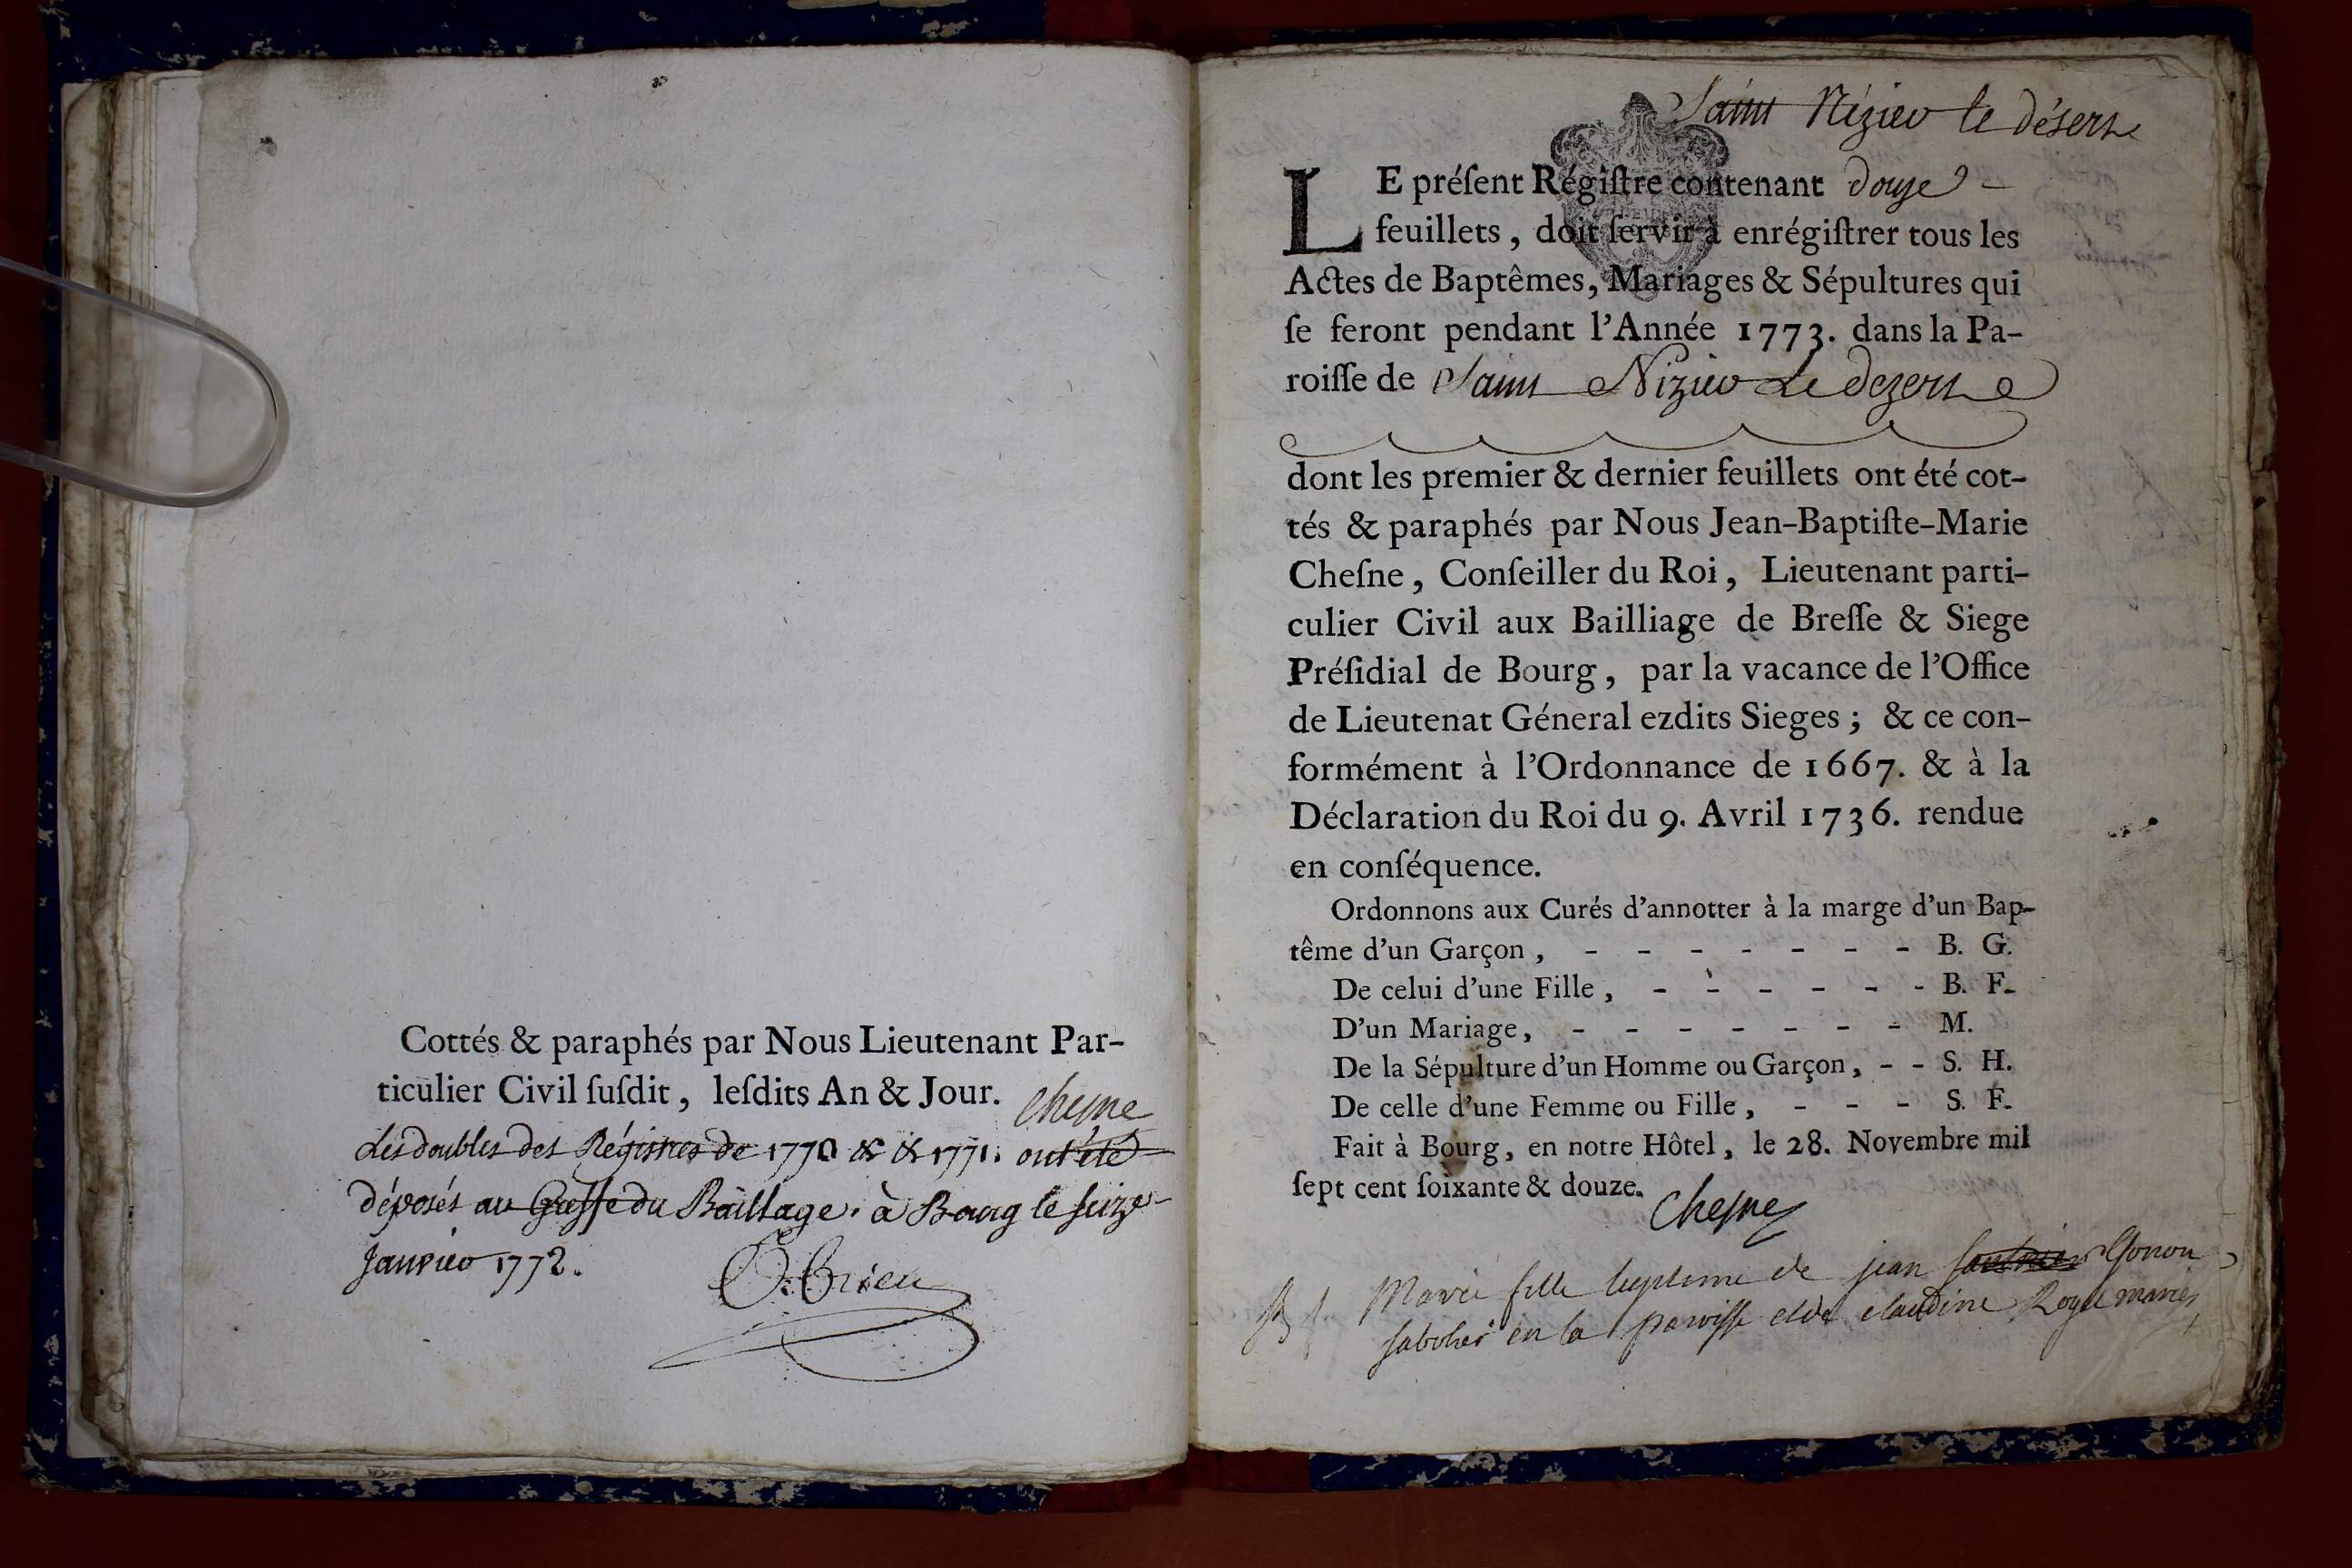 Cottés & paraphés par Nous Lieutenant Par-
ticulier Civil ſuſdit, leſdits An & Jour.
Cheſne
Les doubles des Régistres de 1770 & & 1771. ont été
déposés au Greffe du Bailliage. à Bourg le seize
Janvier 1772.
Saint Nézier le désert
LE préſent Régiſtre contenant douze -
feuillets, doit ſervir à enrégiſtrer tous les
Actes de Baptêmes, Mariages & Sépultures qui
ſe feront pendant l'Année 1773. dans la Pa-
roiſſe de Saint Nizier Le dezert
dont les premier & dernier feuillets ont été cot-
tés & paraphés par Nous Jean-Baptiſte-Marie
Cheſne, Conſeiller du Roi, Lieutenant parti-
culier Civil aux Bailliage de Breſſe & Siege
Préſidial de Bourg, par la vacance de l'Office
de Lieutenat Géneral ezdits Sieges; & ce con-
formément à l'Ordonnance de 1667. & à la
Déclaration du Roi du 9. Avril 1736. rendue
en conſéquence.
Ordonnons aux Curés d'annotter à la marge d'un Bap-
tême d'un Garçon, - - - - - - - B. G.
De celui d'une Fille, - - - - - - B. F.
D'un Mariage, - - - - - - - M.
De la Sépulture d'un Homme ou Garçon, - - S. H.
De celle d'une Femme ou Fille, - - - S. F.
Fait à Bourg, en notre Hôtel, le 28. Novembre mil
ſept cent ſoixante & douze.
Cheſne
B f. Marie fille legitime de jean Gonon
en la paroisse et de claudine Royer mariés